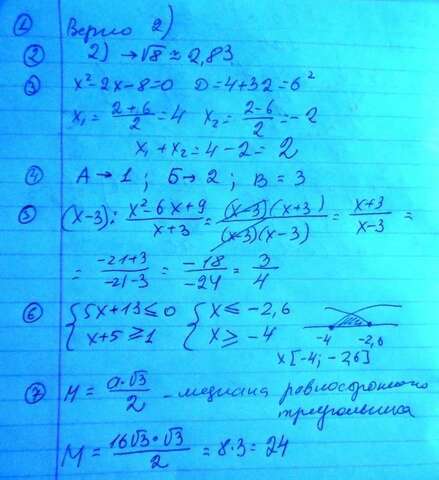 ① Верно 2)
② 2) → √8 ≈ 2,83
③ x²-2x-8=0 D=4+32=6²
x₁ = (2+6)/2 = 4 x₂ = (2-6)/2 = -2
x₁ + x₂ = 4-2 = 2
④ А → 1 ; Б → 2 ; В = 3
⑤ (x-3) : (x²-6x+9)/(x+3) = ((x-3)(x+3))/((x-3)(x-3)) = (x+3)/(x-3) =
= (-21+3)/(-21-3) = (-18)/(-24) = 3/4
⑥ { 5x+13 ≤ 0 { x ≤ -2,6
x+5 ≥ 1 x ≥ -4 -4 -2,6
x [-4; -2,6]
⑦ М = (a·√3)/2 - медиана равностороннего
треугольника
М = (16√3·√3)/2 = 8·3 = 24